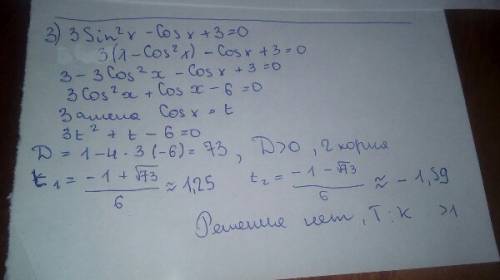 3) 3Sin²x - Cosx + 3 = 0
3(1 - Cos²x) - Cosx + 3 = 0
3 - 3Cos²x - Cosx + 3 = 0
3Cos²x + Cosx - 6 = 0
Замена Cosx = t
3t² + t - 6 = 0
D = 1 - 4 · 3(-6) = 73, D>0, 2 корня
t₁ = (-1 + √73)/6 ≈ 1,25 t₂ = (-1 - √73)/6 ≈ -1,59
Решения нет, т.к >1